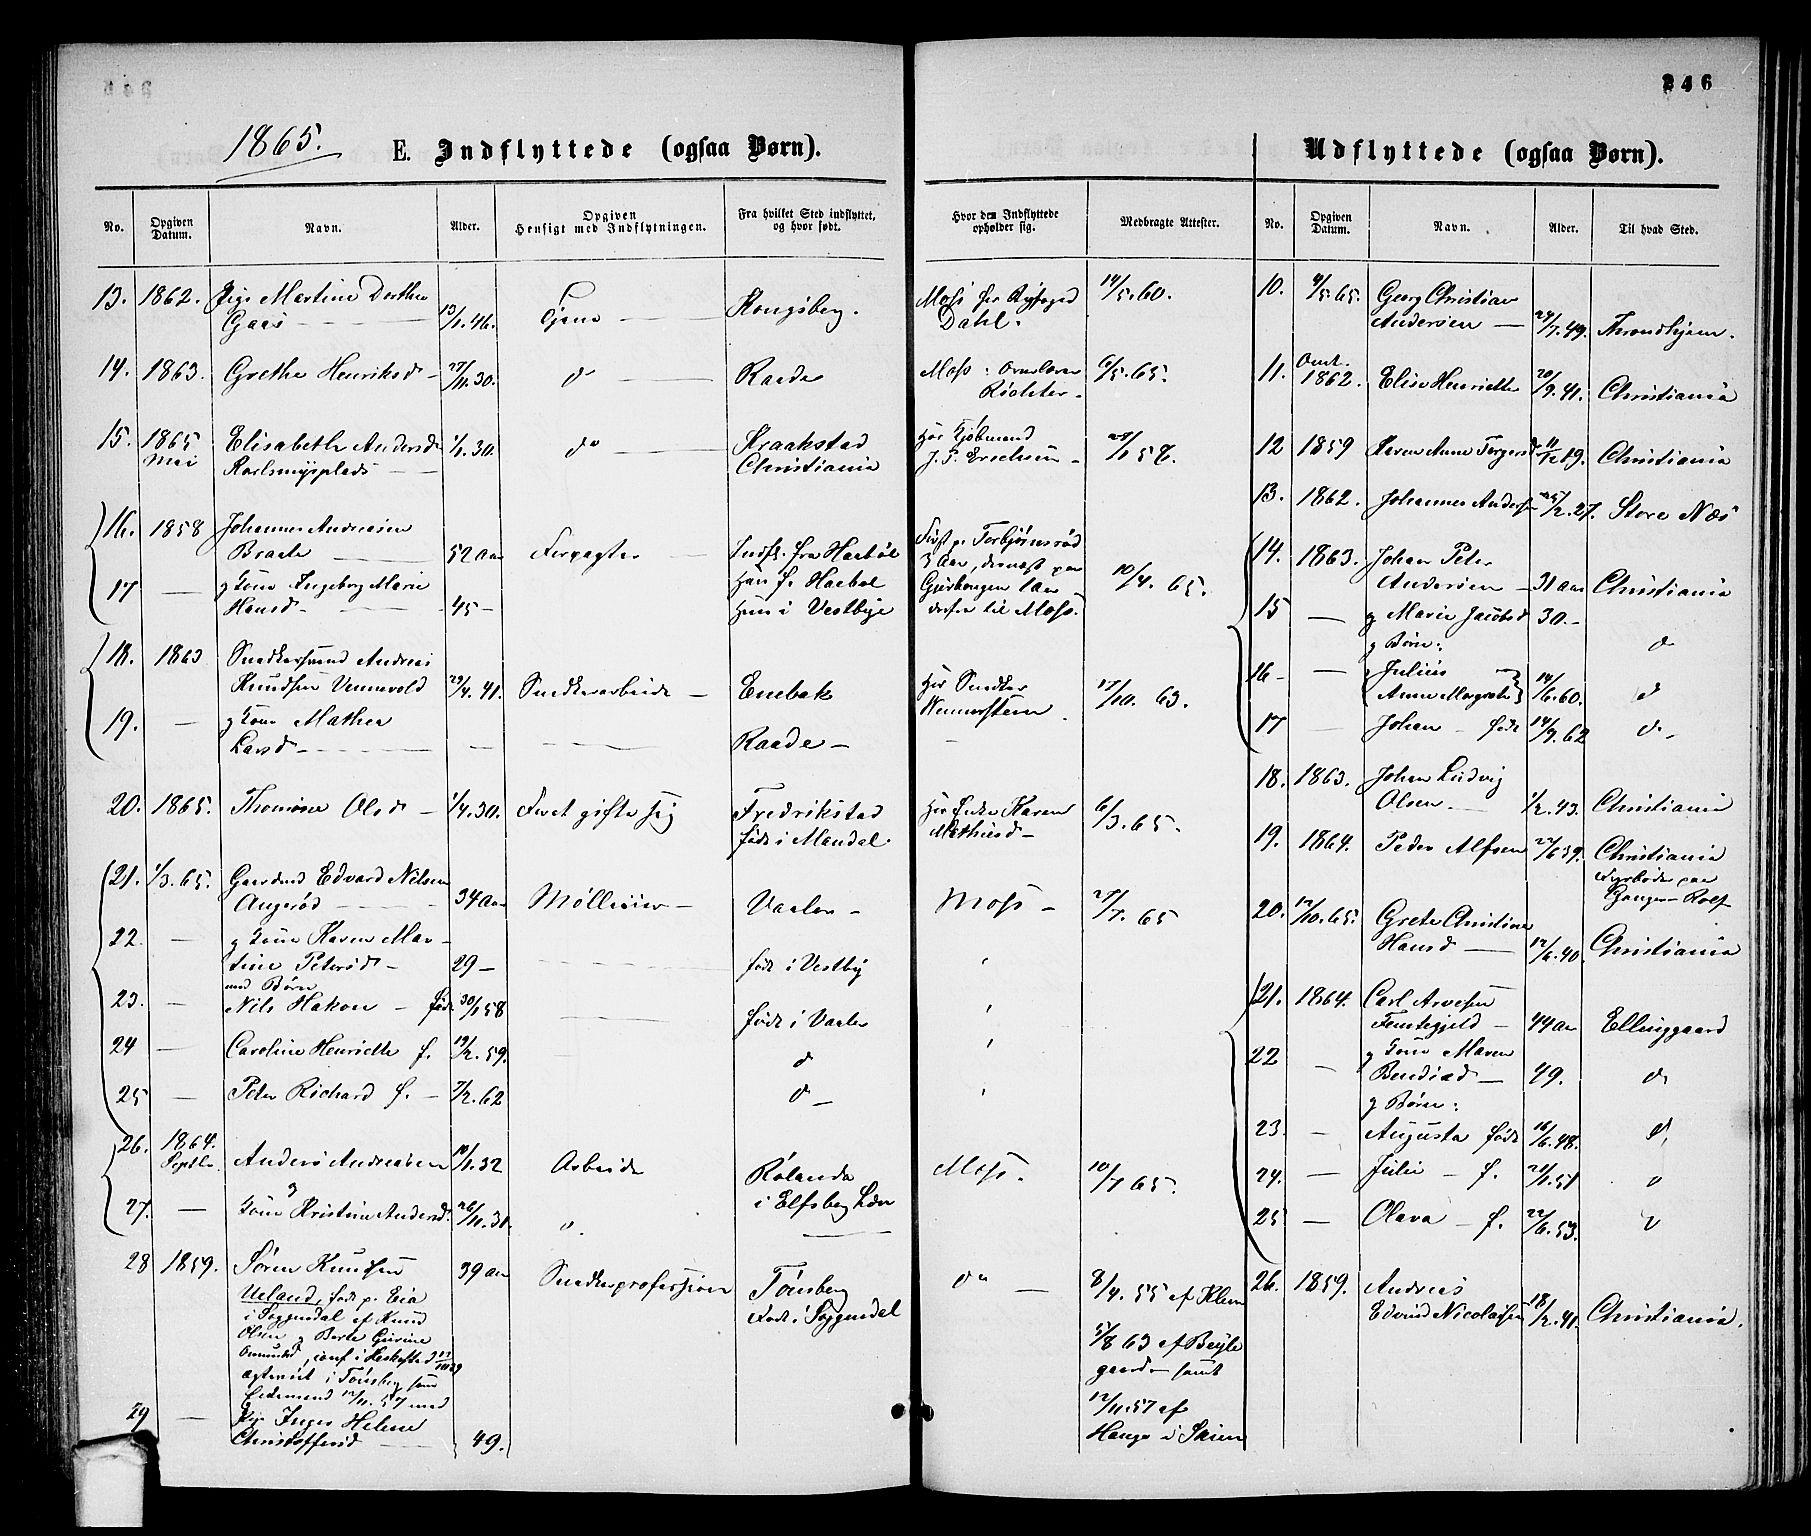 246
1865.
E. Indflyttede (ogsaa Børn).
No.
Opgiven Datum.
Navn.
Alder.
Opgiven Hensigt med Indflytningen.
Fra hvilket Sted indflyttet, og hvor født.
Hvor den Indflyttede opholder sig.
Medbragte Attester.
13. 1862. Pige Martine Dorthea 13/1.46. Tjene Kongsberg. Moss hos 14/5.60.
Gaas Dahl.
14. 1863. Grethe Henriksd 27/11.30. do Raade Moss: Overlærer 6/5.65.
Richter
15. 1865 Elisabeth Andersd 1/1.30. do Kraakstad Hos Kjøbmand
Mai Karlsmyrplads Christiania J. P. Erichsen
16. 1858 Johannes Andreasen 52 Aar Forpagter Indfl. fra Haabøl Først p. Torbjørnsrød 10/4.65.
Braate Han f. Haabøl 3 Aar, dernæst paa
17 g Kone Ingeborg Marie 45 Hun i Vestbye 1 Aar
Hansd derfra til Moss.
18. 1863 Snedkersvend Andreas 29/4.41. Snedkerarbeide Enebak Hos Snedker 17/10.63.
Knudsen Vennevold Wennerstrøm
19. g Kone Mathea Raade
Larsd
20. 1865. Thomine Olsd 1/4.30. For at gifte sig Fredrikstad Hos Enke Karen 6/3.65.
født i Mandal Mathiasd
21. 1/3.65. Gaardmd Edvard Nilsen 34 Aar Vaaler Moss 27/7.65
Angerød
22. g Kone Karen Mar- 29 født i Vestby
tine Petersd
med Børn
23. Nils Hakon født 30/1 58 født i Vaaler
24 Caroline Henriette f. 19/2.59. do
25 Peter Richard f. 7/2.62 do
26. 1864. Anders Andreasen 10/1.32 Arbeide Rølanda Moss. 10/7 65.
Septbr i Elfsborg Læn
27. g Kone Kristine Andersd 26/11.30.
28 1859. Søren Knudsen 39 Aar Snedkerprofession Tønsberg do 8/4.55 af Klem
Ueland, født p. Eia Født i Soggendal
i Soggendal af Knud
Olsen g Berte Gurine 5/8 63 af Beyle
conf i Heskestad gaard samt
i Tønsberg som
12/11.57 med 12/11.57 af
29 Pige Inger Helene 49. Hauge i Skien
Christoffersd
Udflyttede (ogsaa Børn).
No.
Opgiven Datum.
Navn.
Alder.
Til hvad Sted.
10. 4/5.65. Georg Christian
Andersen 24/7.49. Throndhjem.
11. 1862. Elise Henriette 20/9.41. Christiania
12 1859 Karen Anne Torgersd 11/12 19. Christiania
13. 1862. Johannes Andersen 25/2.27. Store Næs
14. 1863. Johan Peter
Andersen 31 Aar Christiania
15 g Marie Jacobsd 30. do
g Børn:
16 Julius
Anne Margrethe 14/6.60. do
17 Johan født 14/9.62 do
18. 1863. Johan Ludvig
Olsen 1/2.43. Christiania
19. 1864. Peder Alfsen 22/6 39. Christiania
Fyrbøder paa
Ganger-Rolf
20. 12/10.65. Grete Christine
Hansd 12/6.40. Christiania
21. 1864. Carl Arvesen
Femtegjeld 44 Aar Ellinggaard
22 g Kone Maren
Bendixd 49. do
g Børn:
23. Augusta født 16/6.48. do
24. Julie f. 21/1.51 do
25 Olava f. 22/6.53. do
26. 1859. Andreas
Edvard Nicolaisen 18/2.41. Christiania.